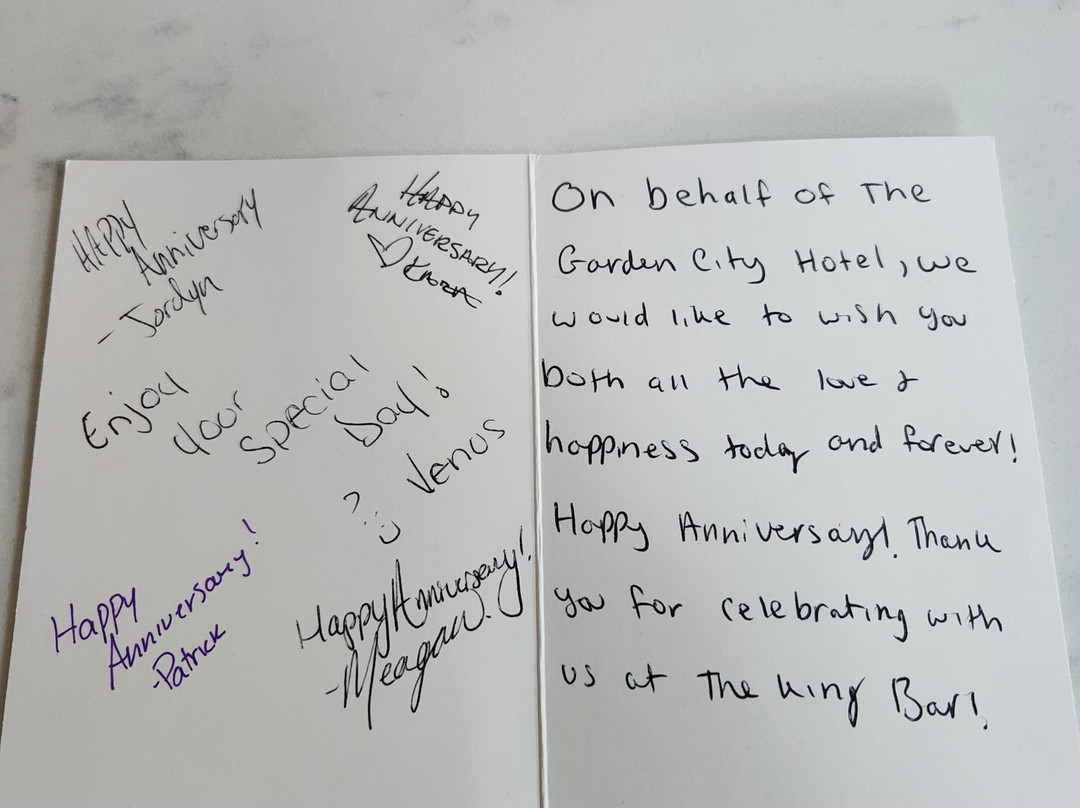 HAPPY
Anniversary
- Jordyn
HAPPY
ANNIVERSARY!
Enjoy
your
Special
Day!
Venus
Happy
Anniversary!
-Patrick
Happy Anniversary!
-Meagan.
On behalf of The
Garden City Hotel, we
would like to wish you
both all the love &
happiness today and forever!
Happy Anniversary! Thank
you for celebrating with
us at The King Bar!